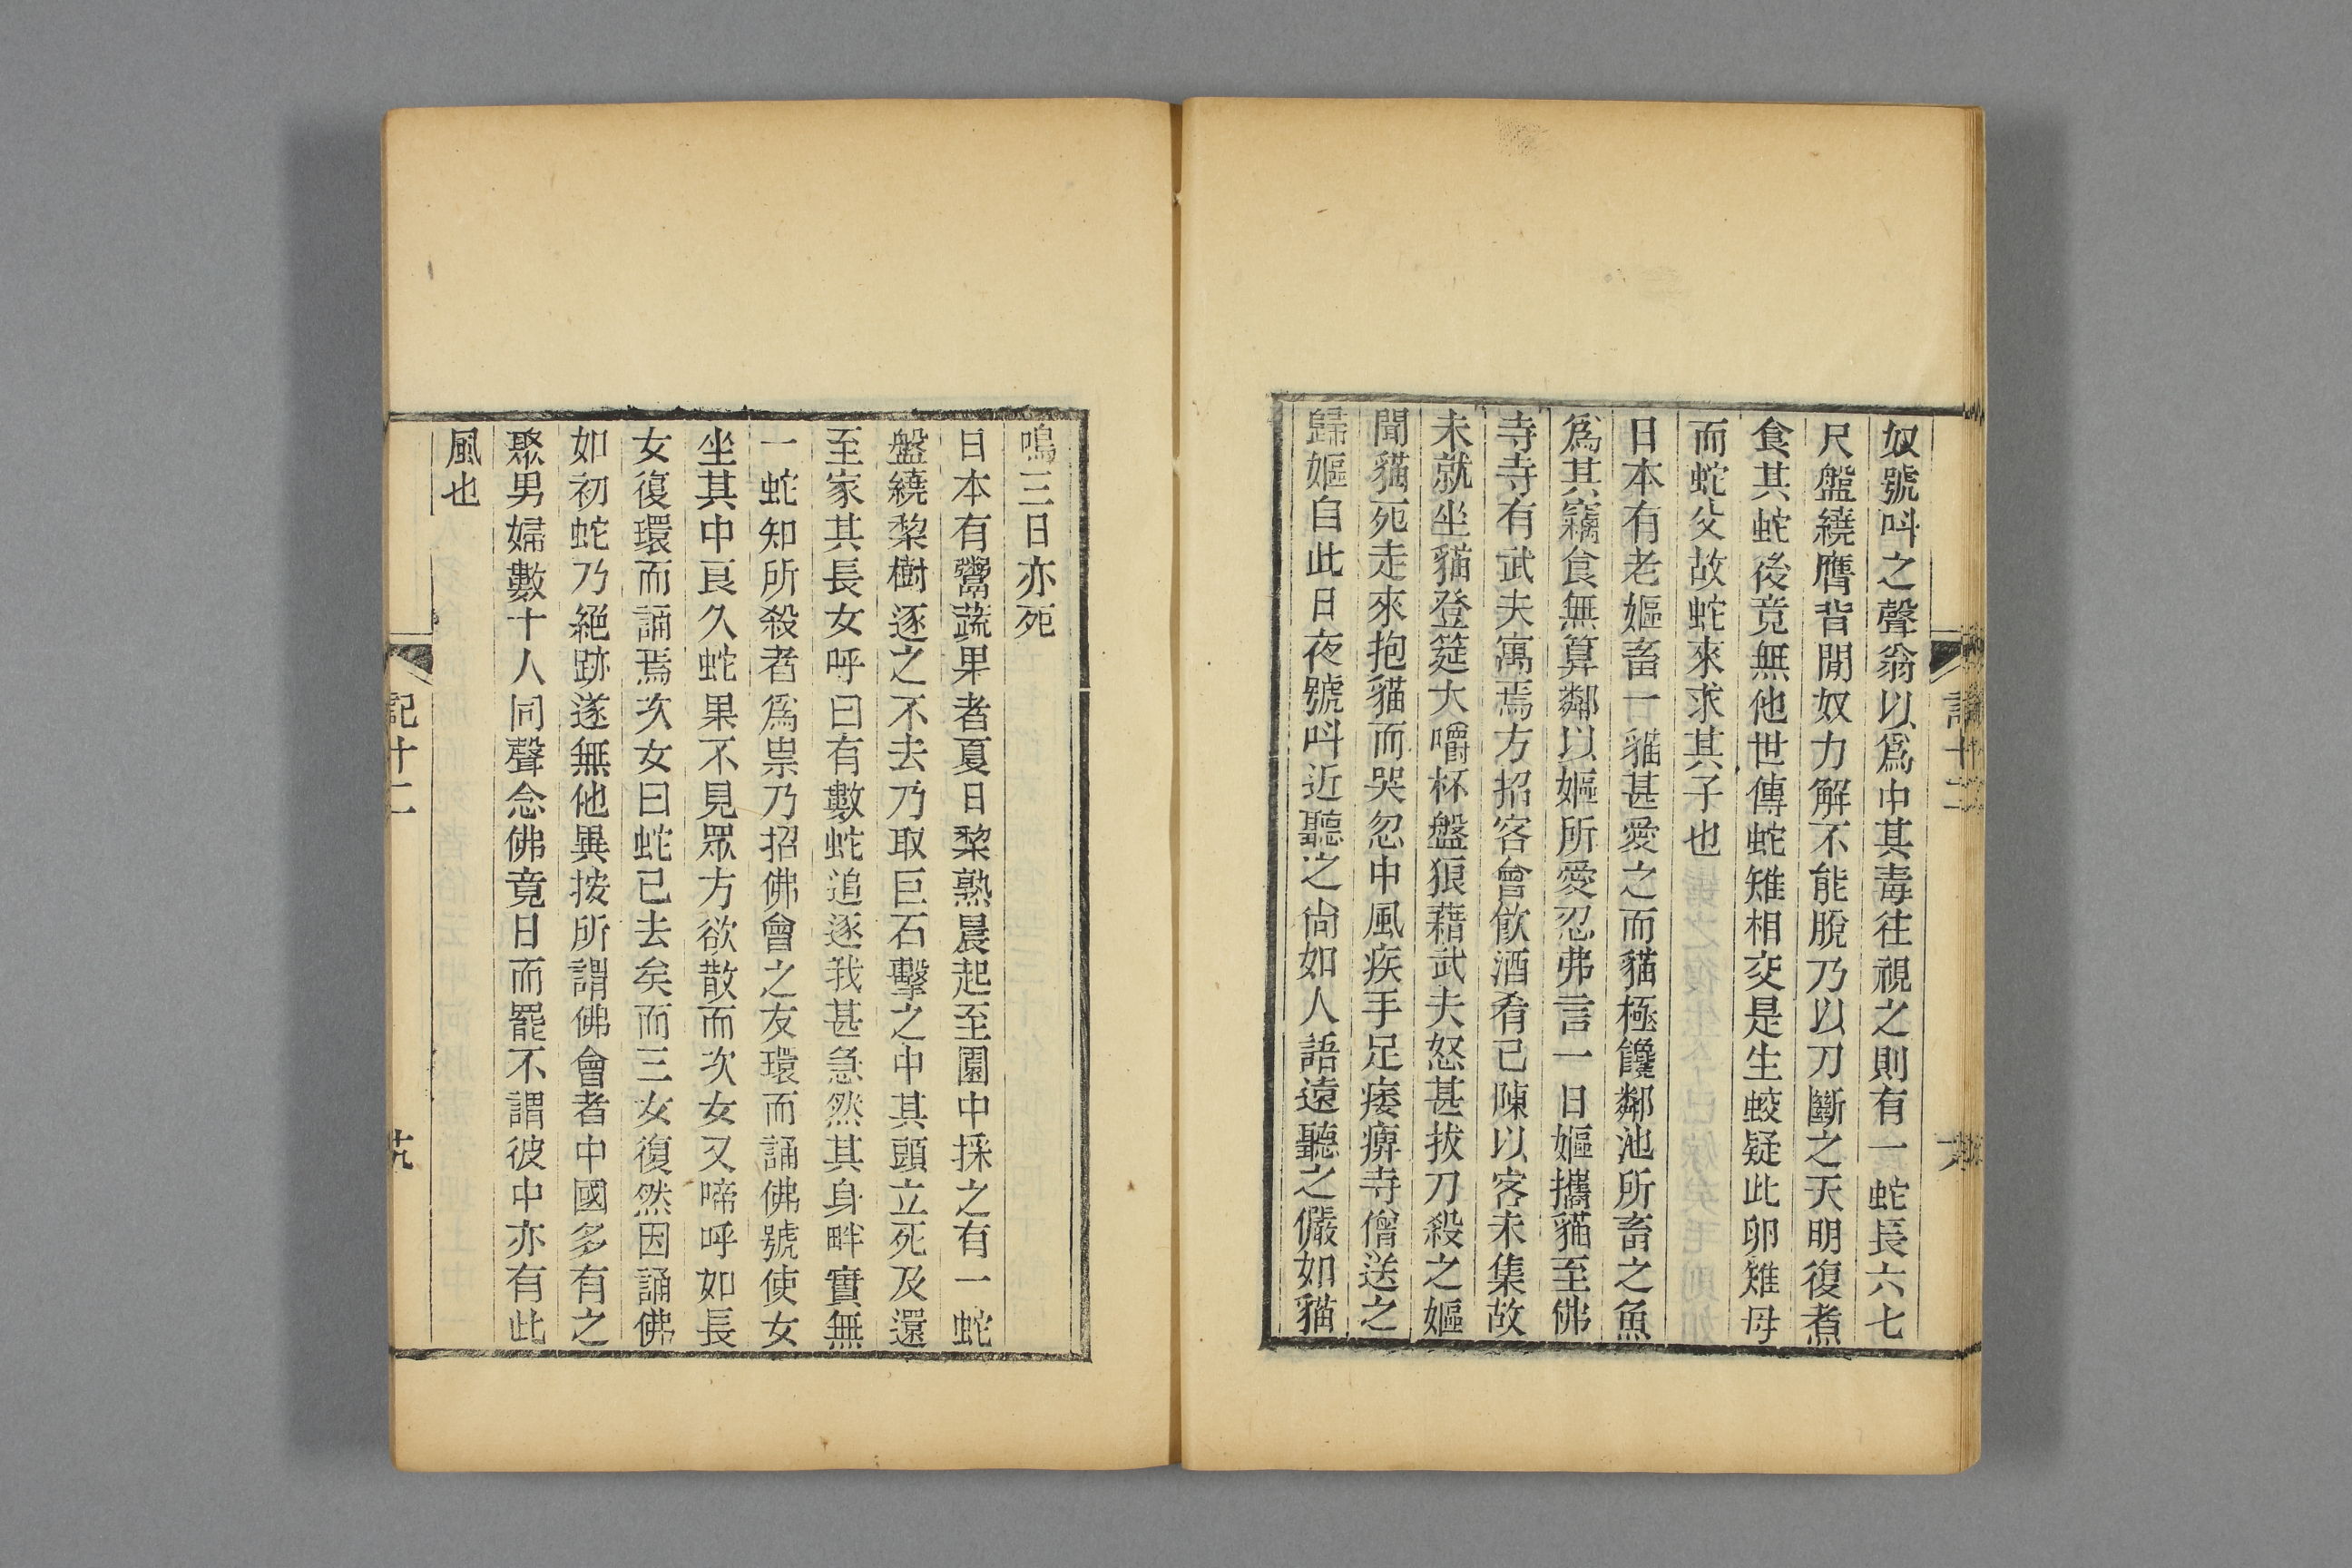 奴號呌之聲翁以爲中其毒往視之則有一蛇長六七
尺盤繞膺背閒奴力解不能脫乃以刀斷之天明復煮
食其蛇後竟無他世傳蛇雉相交是生蛟疑此卵雉母
而蛇父故蛇來求其子也
日本有老嫗畜一貓甚愛之而貓極饞鄰池所畜之魚
爲其竊食無算鄰以嫗所愛忍弗言一日嫗攜貓至佛
寺寺有武夫寓焉方招客會飲酒肴已陳以客未集故
未就坐貓登筵大嚼杯盤狼藉武夫怒甚拔刀殺之嫗
聞貓死走來抱貓而哭忽中風疾手足痿痹寺僧送之
歸嫗自此日夜號呌近聽之尙如人語遠聽之儼如貓
鳴三日亦死
日本有鬻蔬果者夏日棃熟晨起至園中採之有一蛇
盤繞棃樹逐之不去乃取巨石擊之中其頭立死及還
至家其長女呼曰有數蛇追逐我甚急然其身畔實無
一蛇知所殺者爲祟乃招佛會之友環而誦佛號使女
坐其中良久蛇果不見眾方欲散而次女又啼呼如長
女復環而誦焉次女曰蛇已去矣而三女復然因誦佛
如初蛇乃絕跡遂無他異按所謂佛會者中國多有之
聚男婦數十人同聲念佛竟日而罷不謂彼中亦有此
風也
記十二